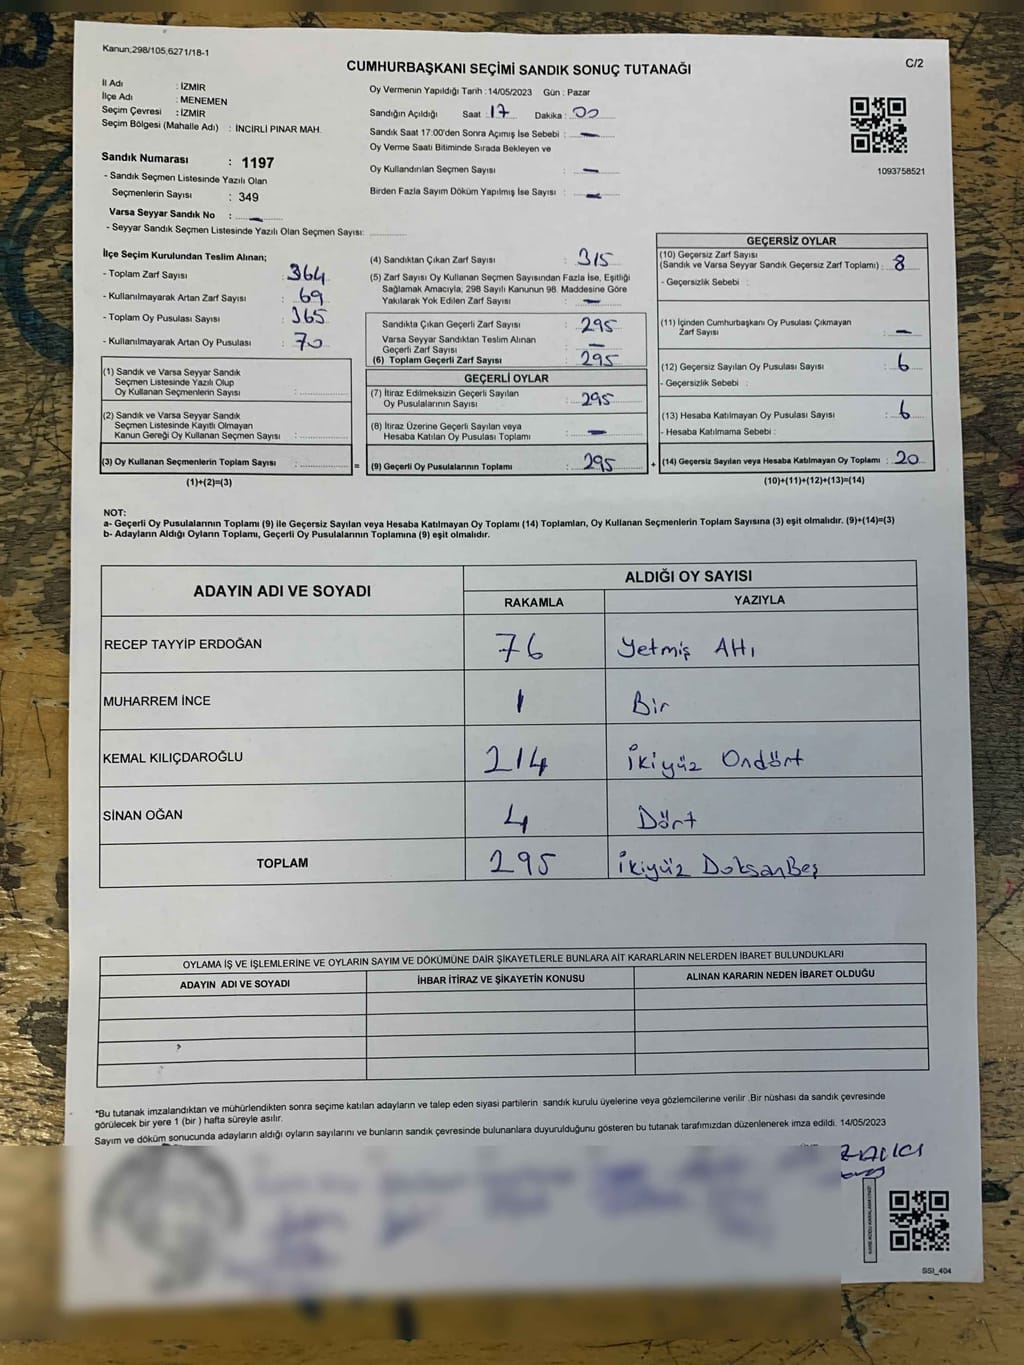 Kanun;298/105,6271/18-1
C/2
CUMHURBAŞKANI SEÇİMİ SANDIK SONUÇ TUTANAĞI
İl Adı : İZMİR
İlçe Adı : MENEMEN
Seçim Çevresi : İZMİR
Seçim Bölgesi (Mahalle Adı) : İNCİRLİ PINAR MAH.
Sandık Numarası : 1197
- Sandık Seçmen Listesinde Yazılı Olan
Seçmenlerin Sayısı : 349
Varsa Seyyar Sandık No : —
- Seyyar Sandık Seçmen Listesinde Yazılı Olan Seçmen Sayısı:
Oy Vermenin Yapıldığı Tarih :14/05/2023 Gün : Pazar
Sandığın Açıldığı Saat : 17 Dakika : 00
Sandık Saat 17:00'den Sonra Açımış İse Sebebi : —
Oy Verme Saati Bitiminde Sırada Bekleyen ve
Oy Kullandırılan Seçmen Sayısı : —
Birden Fazla Sayım Döküm Yapılmış İse Sayısı : —
1093758521
İlçe Seçim Kurulundan Teslim Alınan;
- Toplam Zarf Sayısı : 364
- Kullanılmayarak Artan Zarf Sayısı : 69
- Toplam Oy Pusulası Sayısı : 365
- Kullanılmayarak Artan Oy Pusulası : 70
(1) Sandık ve Varsa Seyyar Sandık
Seçmen Listesinde Yazılı Olup
Oy Kullanan Seçmenlerin Sayısı :
(2) Sandık ve Varsa Seyyar Sandık
Seçmen Listesinde Kayıtlı Olmayan
Kanun Gereği Oy Kullanan Seçmen Sayısı :
(3) Oy Kullanan Seçmenlerin Toplam Sayısı :
(1)+(2)=(3)
=
(4) Sandıktan Çıkan Zarf Sayısı : 315
(5) Zarf Sayısı Oy Kullanan Seçmen Sayısından Fazla İse, Eşitliği
Sağlamak Amacıyla, 298 Sayılı Kanunun 98. Maddesine Göre
Yakılarak Yok Edilen Zarf Sayısı : —
Sandıkta Çıkan Geçerli Zarf Sayısı : 295
Varsa Seyyar Sandıktan Teslim Alınan
Geçerli Zarf Sayısı : —
(6) Toplam Geçerli Zarf Sayısı : 295
GEÇERLİ OYLAR
(7) İtiraz Edilmeksizin Geçerli Sayılan
Oy Pusulalarının Sayısı : 295
(8) İtiraz Üzerine Geçerli Sayılan veya
Hesaba Katılan Oy Pusulası Toplamı : —
(9) Geçerli Oy Pusulalarının Toplamı : 295
+
GEÇERSİZ OYLAR
(10) Geçersiz Zarf Sayısı
(Sandık ve Varsa Seyyar Sandık Geçersiz Zarf Toplamı) : 8
- Geçersizlik Sebebi :
(11) İçinden Cumhurbaşkanı Oy Pusulası Çıkmayan
Zarf Sayısı : —
(12) Geçersiz Sayılan Oy Pusulası Sayısı : 6
- Geçersizlik Sebebi :
(13) Hesaba Katılmayan Oy Pusulası Sayısı : 6
- Hesaba Katılmama Sebebi :
(14) Geçersiz Sayılan veya Hesaba Katılmayan Oy Toplamı : 20
(10)+(11)+(12)+(13)=(14)
NOT:
a- Geçerli Oy Pusulalarının Toplamı (9) ile Geçersiz Sayılan veya Hesaba Katılmayan Oy Toplamı (14) Toplamları, Oy Kullanan Seçmenlerin Toplam Sayısına (3) eşit olmalıdır. (9)+(14)=(3)
b- Adayların Aldığı Oyların Toplamı, Geçerli Oy Pusulalarının Toplamına (9) eşit olmalıdır.
ADAYIN ADI VE SOYADI ALDIĞI OY SAYISI
RAKAMLA YAZIYLA
RECEP TAYYİP ERDOĞAN 76 Yetmiş Altı
MUHARREM İNCE 1 Bir
KEMAL KILIÇDAROĞLU 214 İkiyüz Ondört
SİNAN OĞAN 4 Dört
TOPLAM 295 İkiyüz DoksanBeş
OYLAMA İŞ VE İŞLEMLERİNE VE OYLARIN SAYIM VE DÖKÜMÜNE DAİR ŞİKAYETLERLE BUNLARA AİT KARARLARIN NELERDEN İBARET BULUNDUKLARI
ADAYIN ADI VE SOYADI İHBAR İTİRAZ VE ŞİKAYETİN KONUSU ALINAN KARARIN NEDEN İBARET OLDUĞU
*Bu tutanak imzalandıktan ve mühürlendikten sonra seçime katılan adayların ve talep eden siyasi partilerin sandık kurulu üyelerine veya gözlemcilerine verilir .Bir nüshası da sandık çevresinde
görülecek bir yere 1 (bir ) hafta süreyle asılır.
Sayım ve döküm sonucunda adayların aldığı oyların sayılarını ve bunların sandık çevresinde bulunanlara duyurulduğunu gösteren bu tutanak tarafımızdan düzenlenerek imza edildi. 14/05/2023
SSİ_404